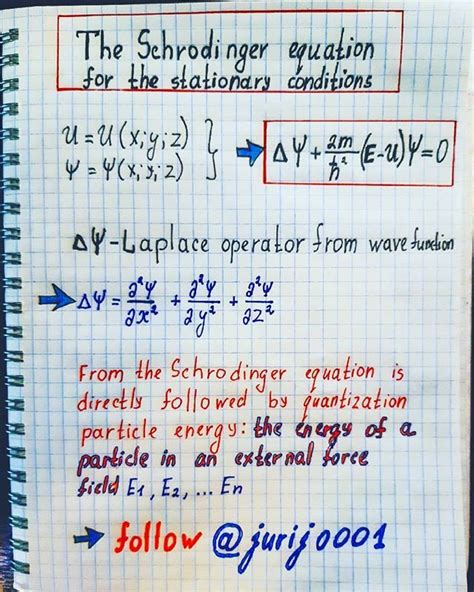 The Schrodinger equation
for the stationary conditions
U = U(x;y;z)
Ψ = Ψ(x;y;z)
ΔΨ + 2m/ħ² (E-U)Ψ = 0
ΔΨ - Laplace operator from wave function
ΔΨ = ∂²Ψ/∂x² + ∂²Ψ/∂y² + ∂²Ψ/∂z²
From the Schrodinger equation is
directly followed by quantization
particle energy: the energy of a
particle in an external force
field E₁, E₂, ... En
follow @jurij0001